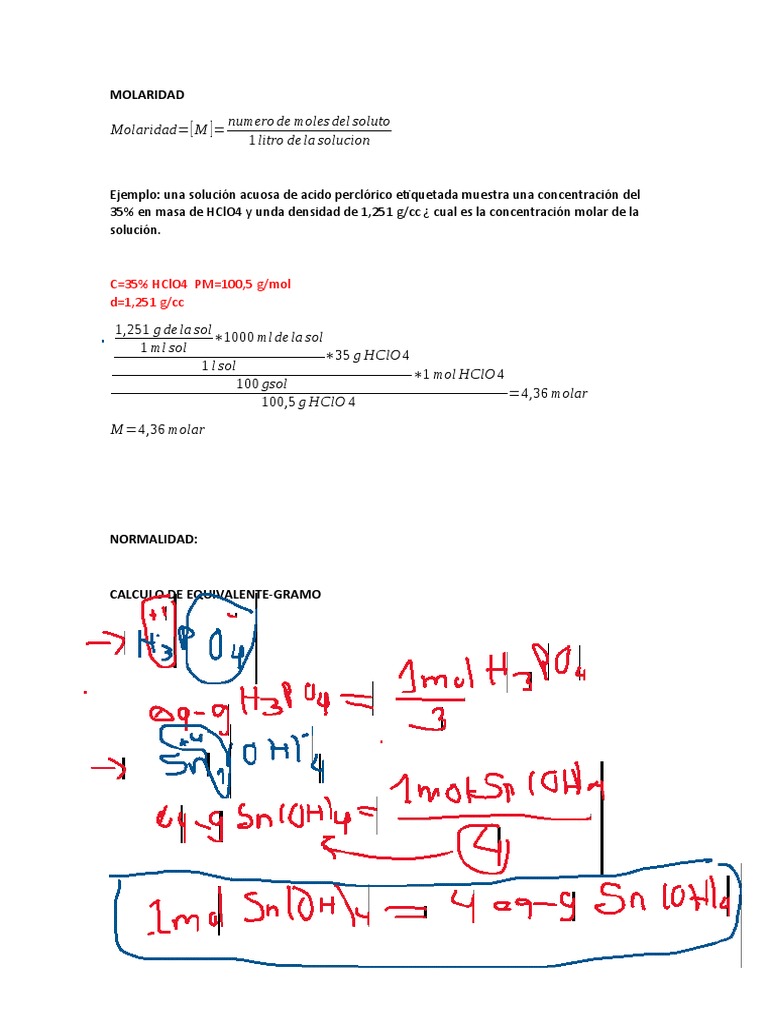 MOLARIDAD
Molaridad=[M]=numero de moles del soluto
1 litro de la solucion
Ejemplo: una solución acuosa de acido perclórico etiquetada muestra una concentración del
35% en masa de HClO4 y unda densidad de 1,251 g/cc ¿ cual es la concentración molar de la
solución.
C=35% HClO4 PM=100,5 g/mol
d=1,251 g/cc
1,251 g de la sol
1 ml sol
∗1000 ml de la sol
1 l sol
∗35 g HClO 4
100 gsol
∗1 mol HClO 4
100,5 g HClO 4
=4,36 molar
M=4,36 molar
NORMALIDAD:
CALCULO DE EQUIVALENTE-GRAMO
+1 -
→ H3PO4
eq-g H3PO4 = 1mol H3PO4
3
+4
→ Sn1(OH)-4
eq-g Sn(OH)4 = 1mol Sn(OH)4
4
1mol Sn(OH)4 = 4 eq-g Sn(OH)4